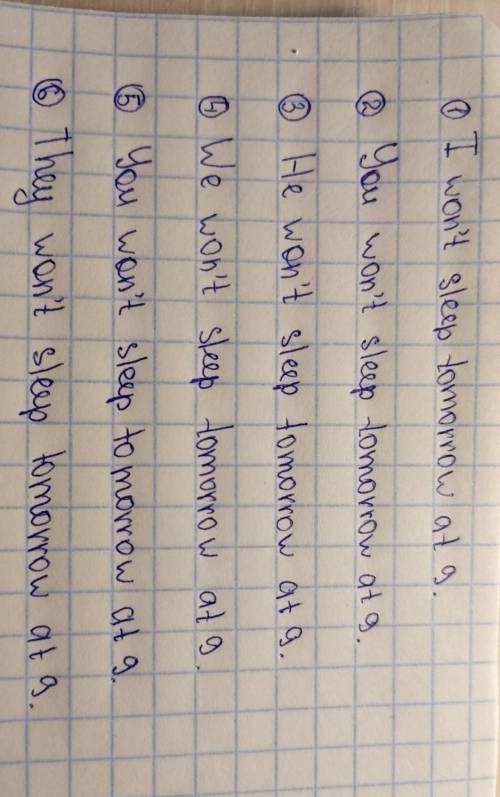 ① I won't sleep tomorrow at 9.
② You won't sleep tomorrow at 9.
③ He won't sleep tomorrow at 9.
④ We won't sleep tomorrow at 9.
⑤ You won't sleep tomorrow at 9.
⑥ They won't sleep tomorrow at 9.